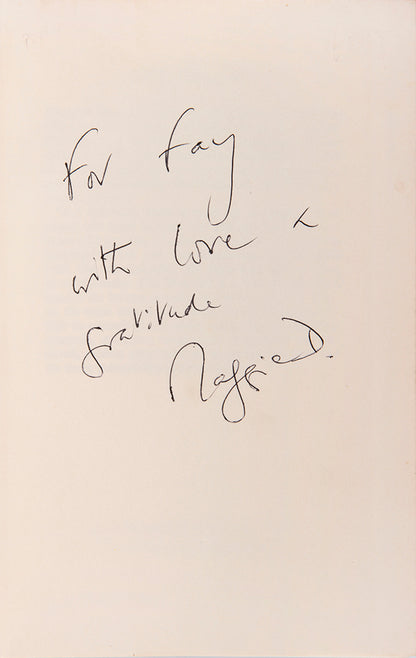 For Fay
with love &
gratitude
Maggie D.